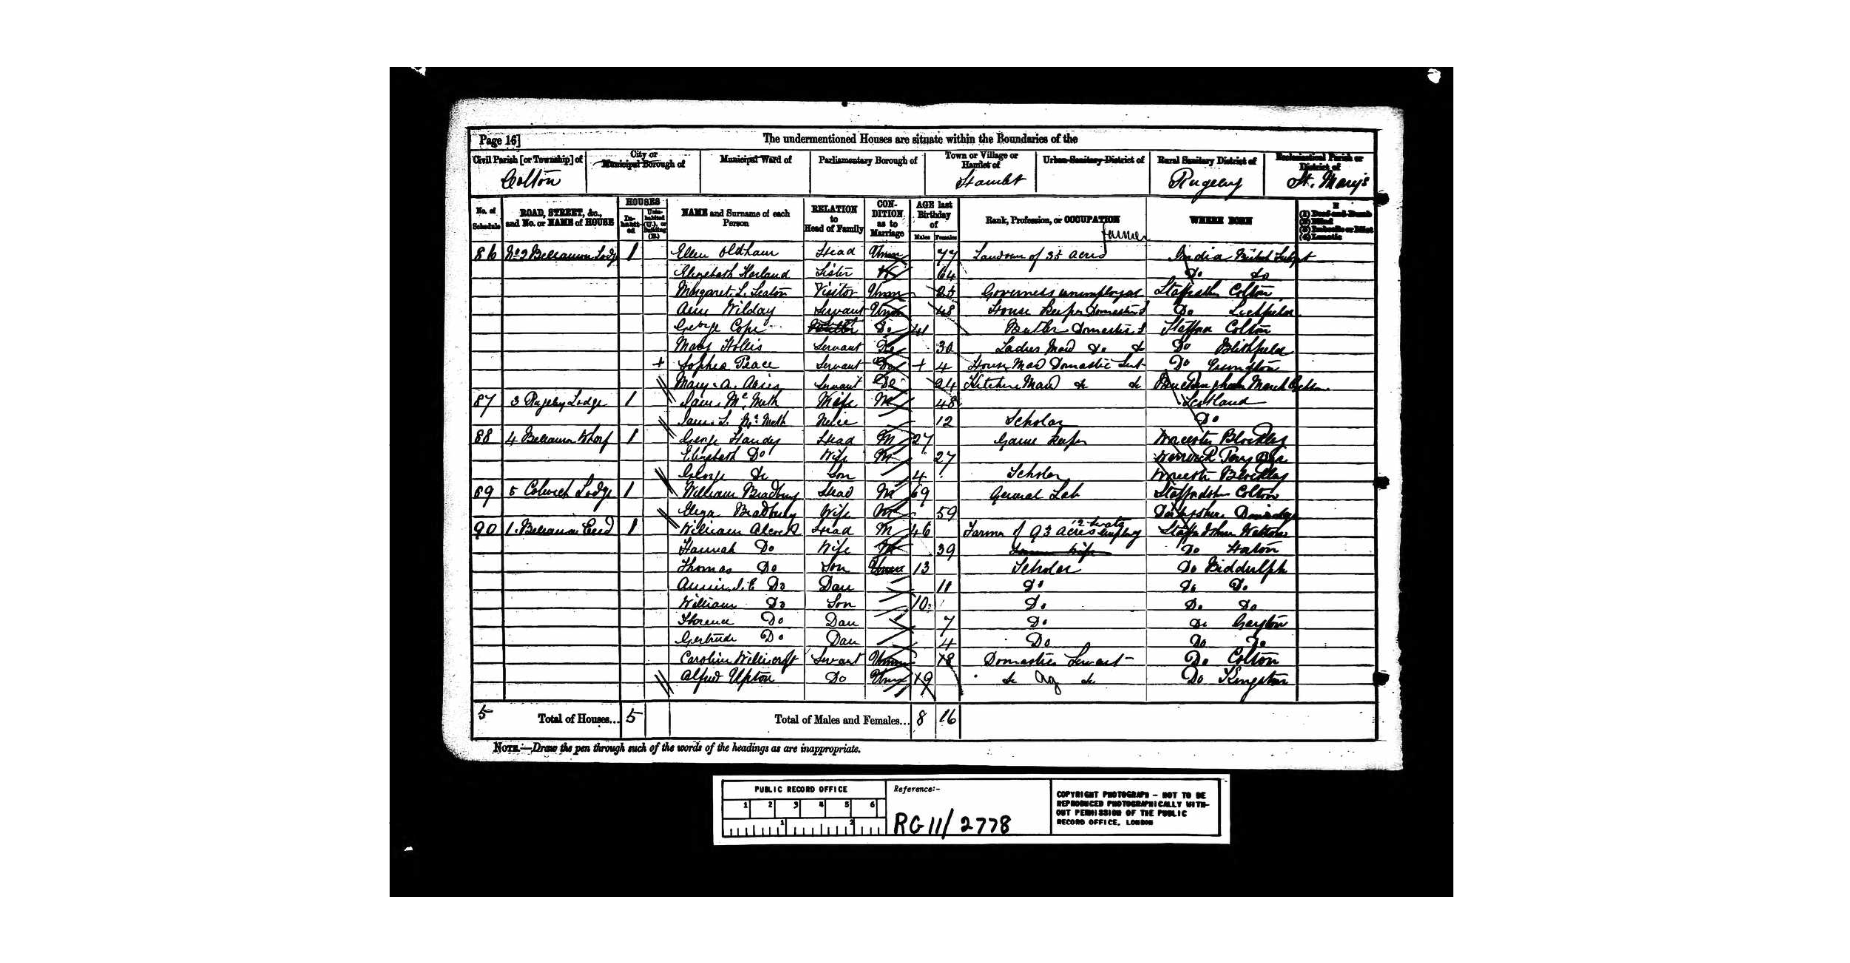 Page 16]
The undermentioned Houses are situate within the Boundaries of the
Civil Parish [or Township] of
City or Municipal Borough of
Municipal Ward of
Parliamentary Borough of
Town or Village or Hamlet of
Urban Sanitary District of
Rural Sanitary District of
Ecclesiastical Parish or District of
Colton
Hamlet
Rugeley
St. Mary's
No. of Schedule
ROAD, STREET, &c., and No. or NAME of HOUSE
HOUSES
In-habit-ed
Unin-habited (U.), or Building (B.)
NAME and Surname of each Person
RELATION to Head of Family
CON-DITION as to Marriage
AGE last Birthday of
Males Females
Rank, Profession, or OCCUPATION
WHERE BORN
If
(1) Deaf-and-Dumb
(2) Blind
(3) Imbecile or Idiot
(4) Lunatic
Farmer
86 1 Ellen Oldham Head Unm 77 of 35 acres India British Subject
Elizabeth Sister 64 Do Do
Margaret L. Seaton Visitor Unm 25 Governess unemployed Colton
Wilday Servant Unm 48 House Keeper Domestic S Do Lichfield
George Cope Do 41 Butler Domestic S Colton
Mary Hollis Servant Do 30 Ladies Maid Do Do Do Blithfield
Sophia Peace Servant House Maid Domestic Do
Mary A. Servant Do 24 Kitchen Maid Do Do
87 3 Rugeley Lodge 1 Wife M 48 Scotland
Neice 12 Scholar Do
88 4 Wharf 1 George Handy Head M 27 Game Keeper Worcester Blockley
Elizabeth Do Wife M 27 Warwick
George Do Son 4 Scholar Worcester Blockley
89 5 Colwich Lodge 1 William Bradbury Head M 69 General Lab Colton
Eliza Bradbury Wife M 59
90 1 William Head M 46 Farmer of 93 acres
Hannah Do Wife M 39 Do
Thomas Do Son 13 Scholar Do Biddulph
Do Dau 11 Do Do Do
William Do Son 10 Do Do Do
Florence Do Dau 7 Do Do Gayton
Gertrude Do Dau 4 Do Do Do
Caroline Servant Unm 18 Domestic Servant Do Colton
Alfred Upton Do Unm 19 Do Ag Do Do Kingston
5 Total of Houses... 5 Total of Males and Females... 8 16
NOTE.—Draw the pen through such of the words of the headings as are inappropriate.
PUBLIC RECORD OFFICE
1 2 3 4 5 6
1 2
Reference:-
RG 11/2778
COPYRIGHT PHOTOGRAPH - NOT TO BE
REPRODUCED PHOTOGRAPHICALLY WITH-
OUT PERMISSION OF THE PUBLIC
RECORD OFFICE, LONDON